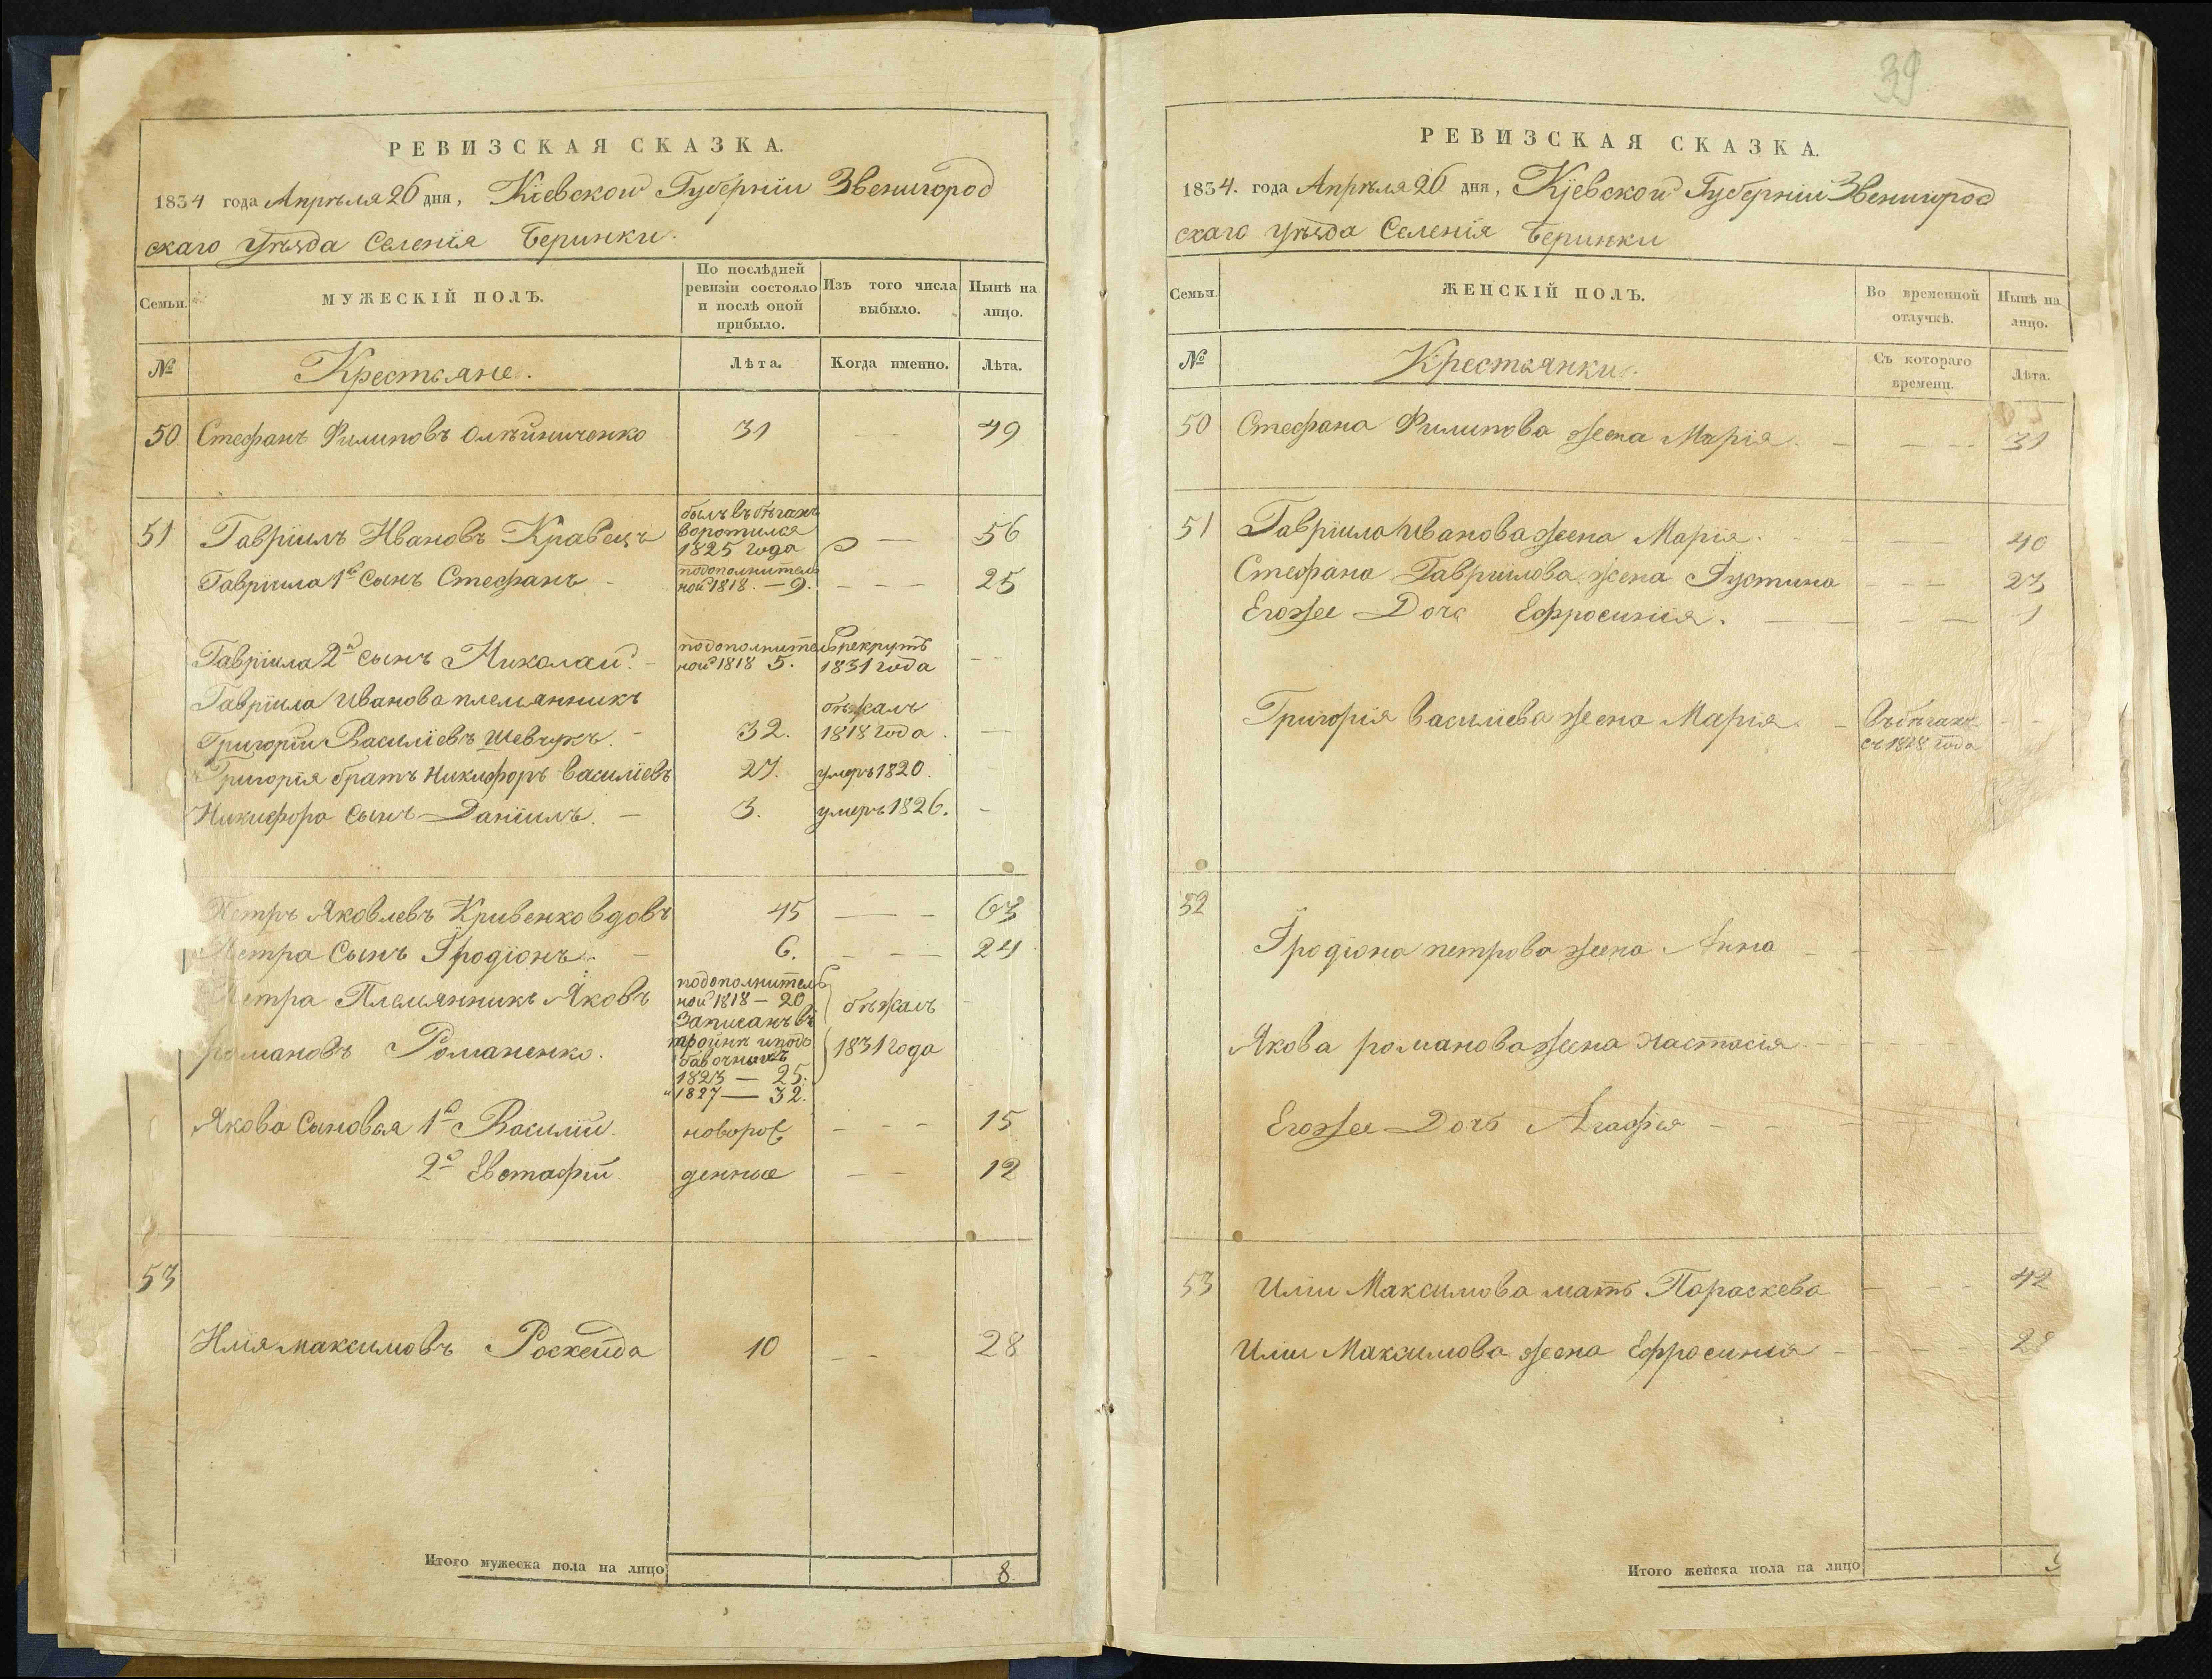 39
РЕВИЗСКАЯ СКАЗКА.
1834 года Апрѣля 26 дня, Кіевской Губерніи Звенигород
скаго уѣзда Селенія Беринки.
Семьи.
МУЖЕСКІЙ ПОЛЪ.
По послѣдней
ревизіи состояло
и послѣ оной
прибыло.
Изъ того числа
выбыло.
Нынѣ на
лицо.
№
Крестьяне.
Лѣта.
Когда именно.
Лѣта.
50 Стефанъ Филиповъ Олѣйниченко 31 — 49
былъ въ бѣгахъ
51 Гавріилъ Ивановъ Кравецъ воротился — 56
1825 года
Гавріила 1й сынъ Стефанъ — подополнитель
ной 1818. — 9. — — — 25
Гавріила 2й сынъ Николай. — подополнитель Врекрутъ
ной 1818 5. 1831 года — —
Гавріила Иванова племянникъ
бѣжалъ
Григорій Василіевъ Шевчукъ. — 32. 1818 года. —
Григорія братъ Никифоръ Василіевъ 27. умеръ 1820.
Никифора сынъ Даніилъ. — 3. умеръ 1826. —
Петръ Яковлевъ Кривенко вдовъ 45 — — 63
Петра Сынъ Іродіонъ. — 6. — — — 24
Петра Племянникъ Яковъ подополнитель
ной 1818 — 20 бѣжалъ —
Записанъ въ
романовъ Романенко. 1831 года
1823 — 25.
1827 — 32.
Якова Сыновья 1й Василій. новорож — — — 15
2й Евстафій. денные — — 12
53
Илія максимовъ 10 — — 28
Итого мужеска пола на лицо 8.
РЕВИЗСКАЯ СКАЗКА.
1834. года Апрѣля 26 дня, Кіевской Губерніи Звенигород
скаго уѣзда Селенія Беринки
Семьи.
ЖЕНСКІЙ ПОЛЪ.
Во временной
отлучкѣ.
Нынѣ на
лицо.
№
Крестьянки.
Съ котораго
времени.
Лѣта.
50 Стефана Филипова жена Марія. — — — — 31
51 Гавріила Иванова жена Марія. — — — 40
Стефана Гавріилова жена Іустина — — — 23
Егоже Дочь Ефросинія. — — — 1
Григорія Василіева жена Марія. — въ бѣгахъ — —
съ 1818 года
52
Іродіона петрова жена Анна — — —
Якова романова жена Настасія. — — — —
Егоже Дочь Агафія — — — —
53 Иліи Максимова мать Параскева — — — 42
Иліи Максимова жена Ефросинія — — —
Итого женска пола на лицо